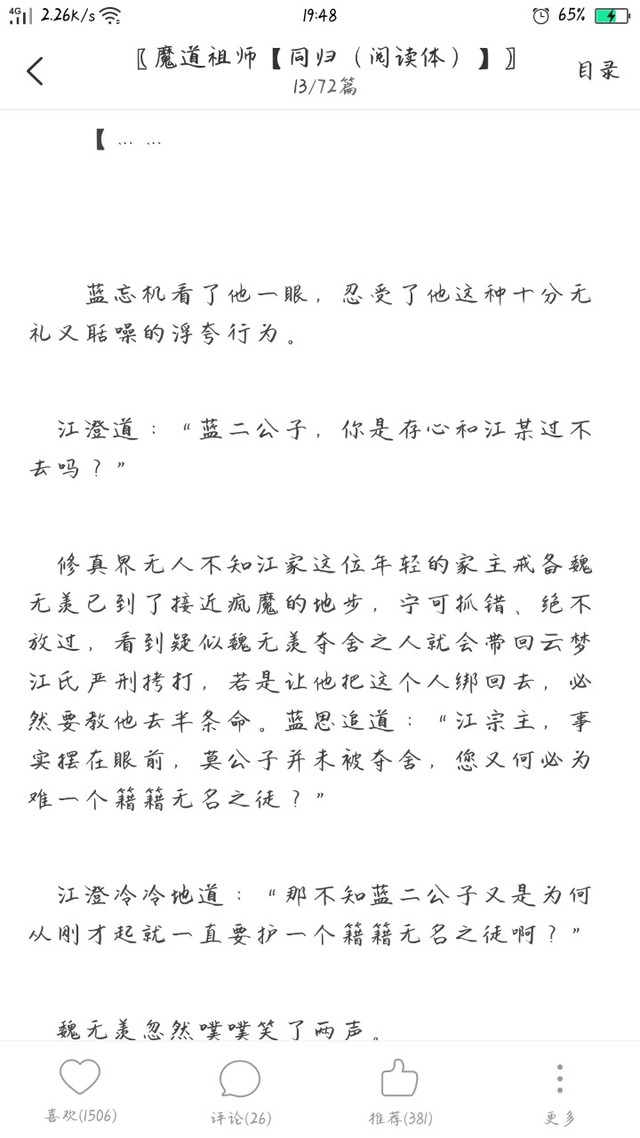 4G 2.26K/s 19:48 65%
〖魔道祖师【同归（阅读体）】〗
13/72篇
目录
【 … …
蓝忘机看了他一眼，忍受了他这种十分无
礼又聒噪的浮夸行为。
江澄道：“蓝二公子，你是存心和江某过不
去吗？”
修真界无人不知江家这位年轻的家主戒备魏
无羡已到了接近疯魔的地步，宁可抓错、绝不
放过，看到疑似魏无羡夺舍之人就会带回云梦
江氏严刑拷打，若是让他把这个人绑回去，必
然要教他去半条命。蓝思追道：“江宗主，事
实摆在眼前，莫公子并未被夺舍，您又何必为
难一个籍籍无名之徒？”
江澄冷冷地道：“那不知蓝二公子又是为何
从刚才起就一直要护一个籍籍无名之徒啊？”
魏无羡忽然噗噗笑了两声。
喜欢(1506) 评论(26) 推荐(381) 更多